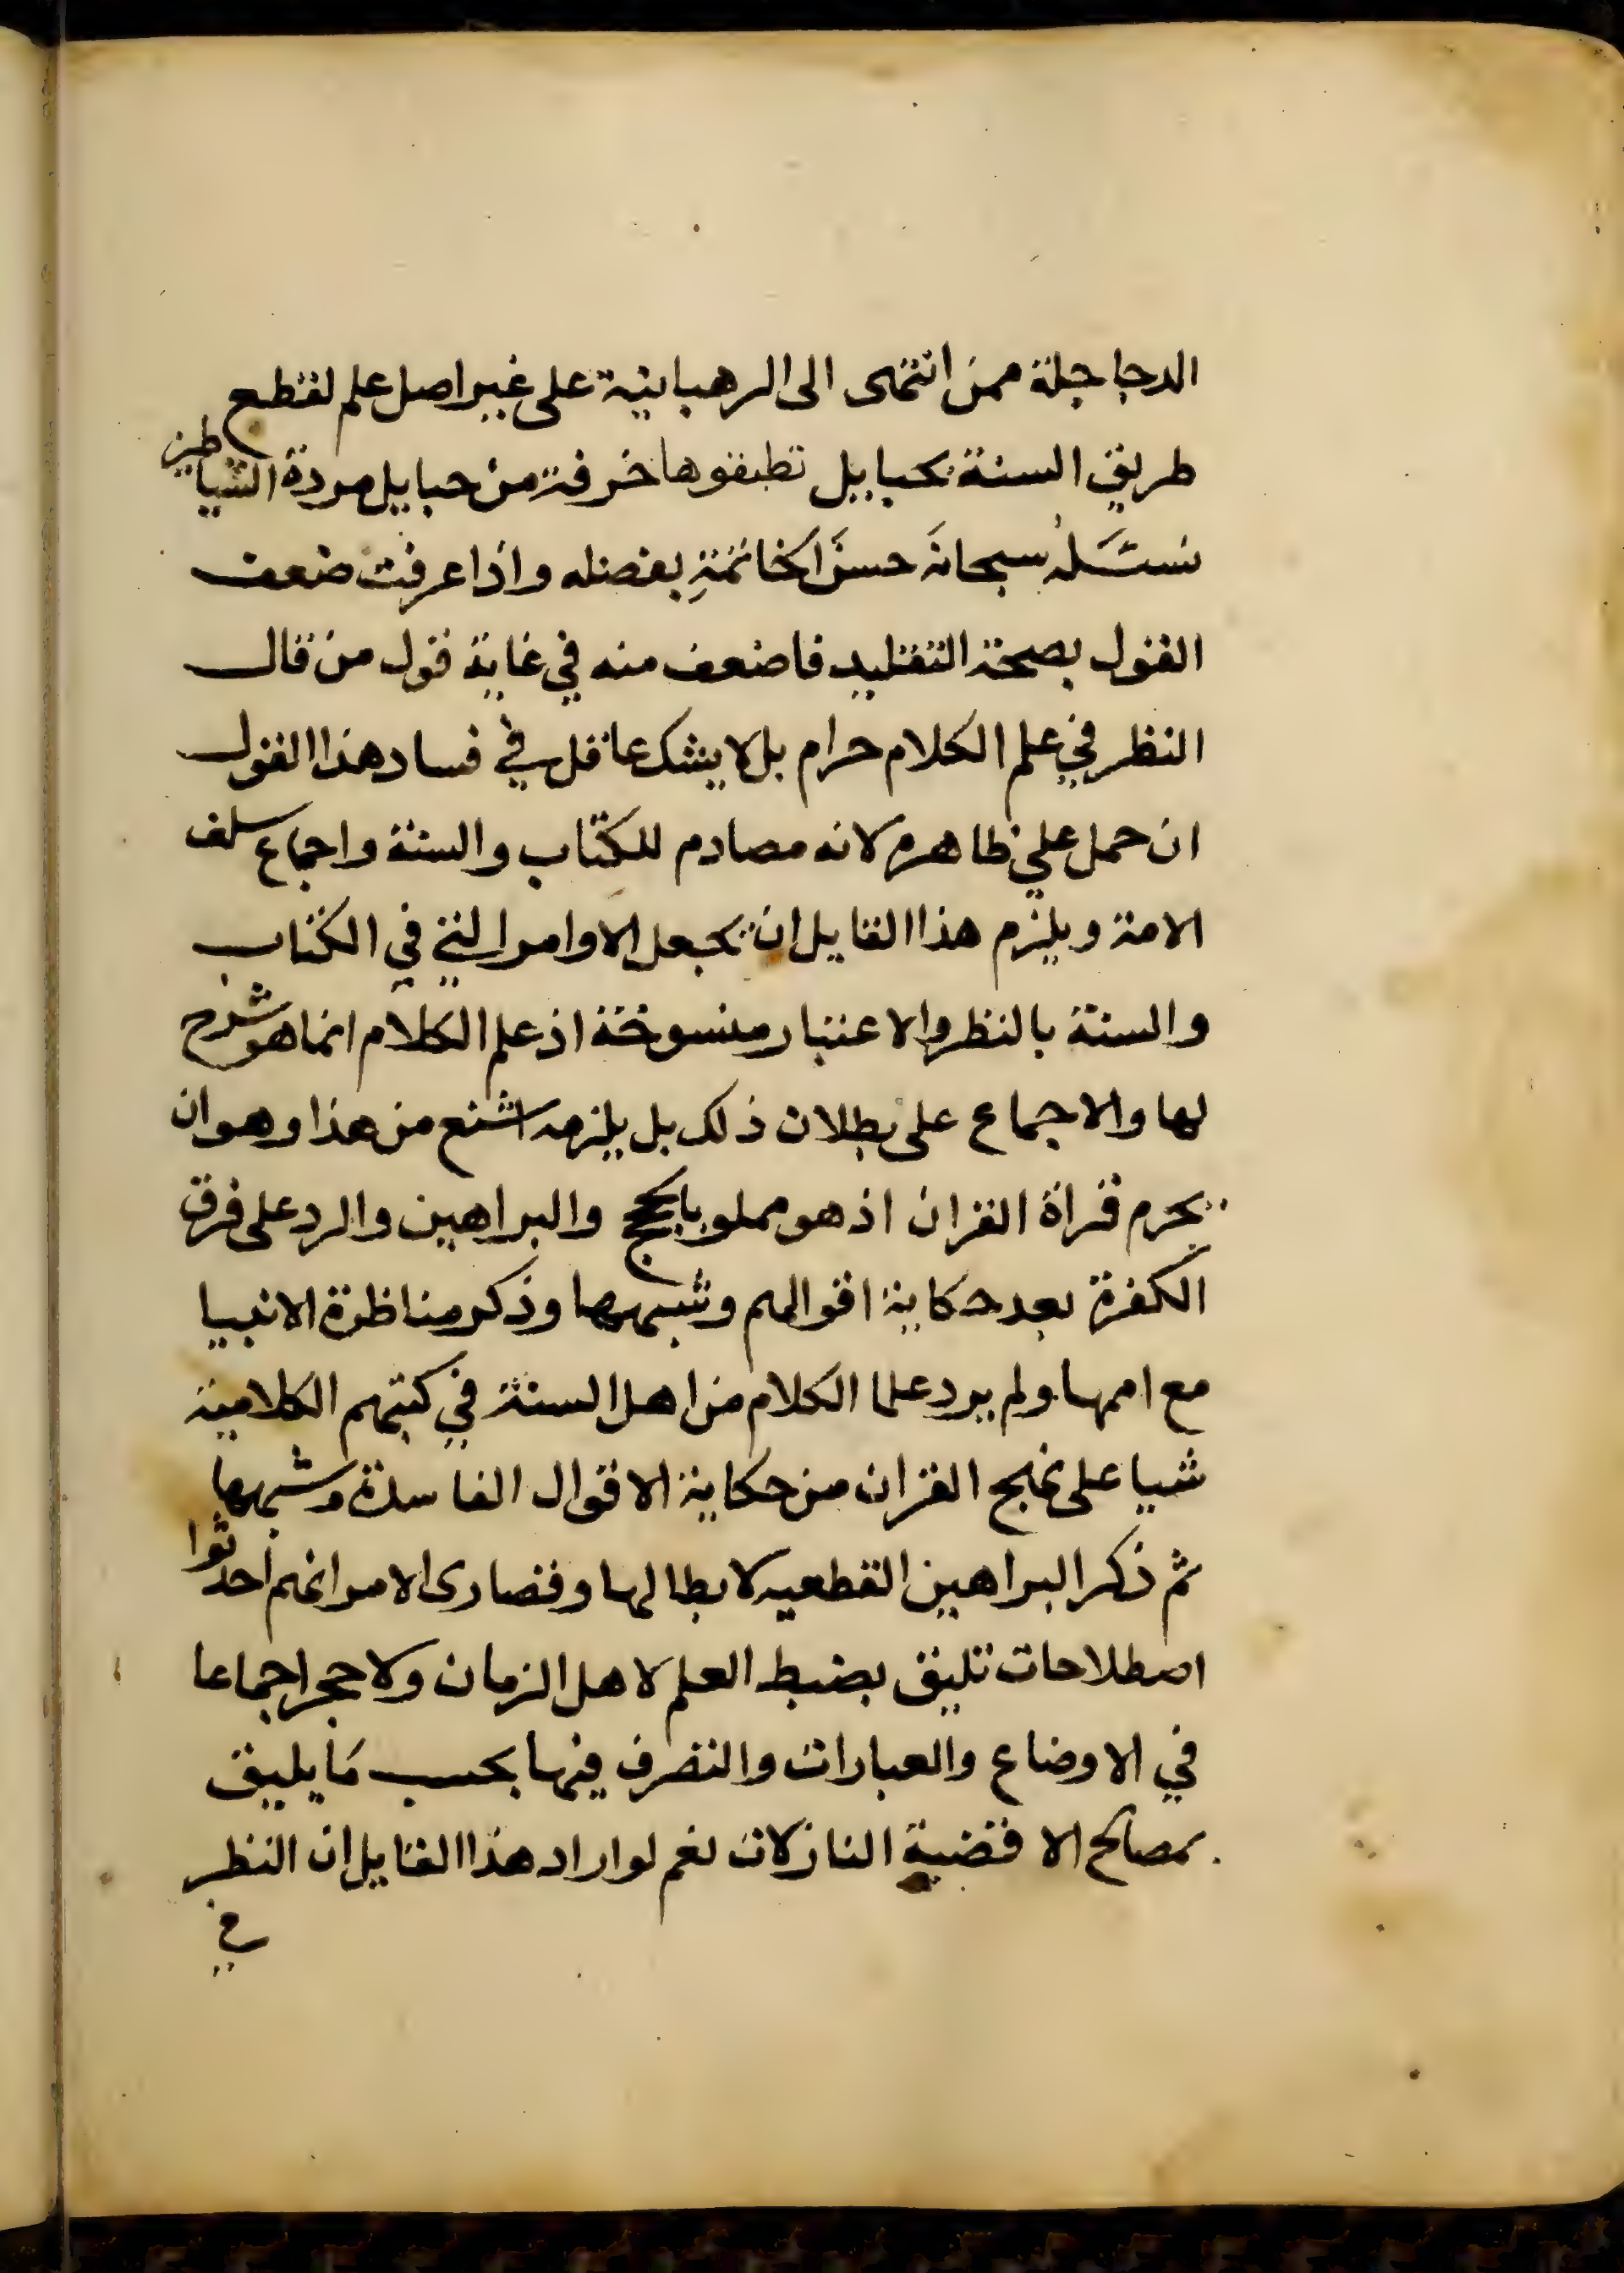 الدجاجلة ممن انتمى الى الرهبانية على غير اصل علم لقطع
طريق السنة بحبايل تطبقوها خرفة من حبايل مردة الشياطين
نسئله سبحانه حسن الخاتمة بفضله واذا عرفت ضعف
القول بصحة التقليد فاضعف منه في غاية قول من قال
النظر في علم الكلام حرام بل لا يشك عاقل في فساد هذا القول
ان حمل على ظاهره لانه مصادم للكتاب والسنة واجماع سلف
الامة ويلزم هذا القايل ان يجعل الاوامر التي في الكتاب
والسنة بالنظر والاعتبار منسوخة اذ علم الكلام انما هو شرح
لها والاجماع على بطلان ذلك بل يلزمه اشنع من هذا وهو ان
يحرم قراة القران اذ هو مملو بالحجج والبراهين والرد على فرق
الكفرة بعد حكاية اقوالهم وشبهها وذكر مناظرة الانبيا
مع اممها ولم يرد علما الكلام من اهل السنة في كتبهم الكلامية
شيا على نهج القران من حكاية الاقوال الفاسدة وشبهها
ثم ذكر البراهين القطعيه لابطالها وقصارى الامر انهم احدثوا
اصطلاحات تليق بضبط العلم لاهل الزمان ولا حجر اجماعا
في الاوضاع والعبارات والتصرف فيها بحسب ما يليق
بمصالح الاقضية النازلات نعم لو اراد هذا القايل ان النظر
في